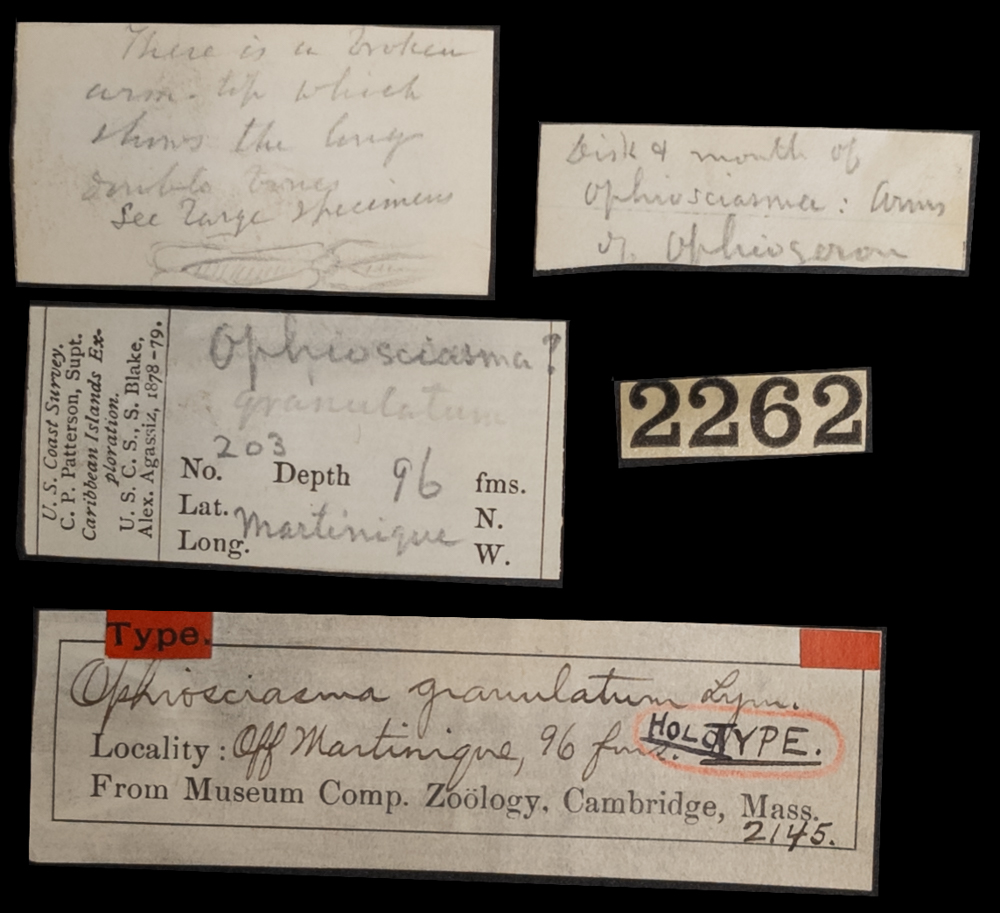 There is a broken
arm-tip which
shows the long
double bones
See large specimens
Disk & mouth of
Ophiosciasma: Arms
of Ophiogeron
U. S. Coast Survey.
C. P. Patterson, Supt.
Caribbean Islands Ex-
ploration.
U. S. C. S., S. Blake,
Alex. Agassiz, 1878-79.
Ophiosciasma?
granulatum
No. 203 Depth 96 fms.
Lat. N.
Martinique
Long. W.
2262
Type.
Ophiosciasma granulatum Lym.
Locality: Off Martinique, 96 fms.
HOLOTYPE.
From Museum Comp. Zoölogy, Cambridge, Mass.
2145.